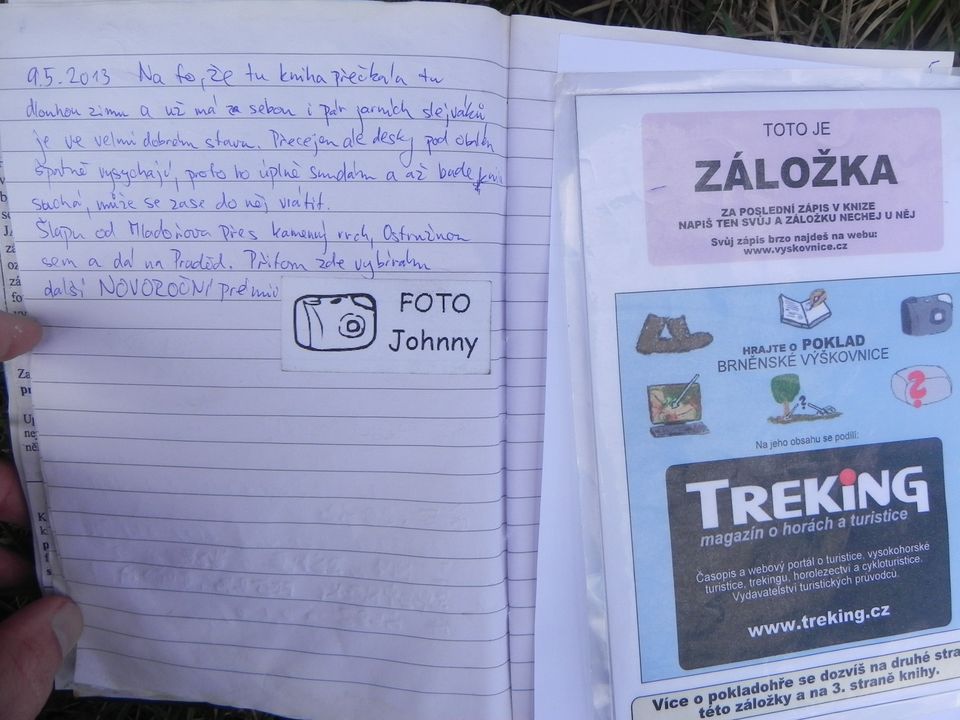 9.5.2013 Na to, že tu kniha přečkala tu
dlouhou zimu a už má za sebou i pár jarních slejváků
je ve velmi dobrém stavu. Přecejen ale desky pod obalem
špatně vysychají, proto ho úplně sundám a až bude kniha
suchá, může se zase do něj vrátit.
Šlapu od Mladoňova přes Kamenný vrch, Ostružnou
sem a dál na Praděd. Přitom zde vybírám
další NOVOROČNÍ prémii
FOTO
Johnny
TOTO JE
ZÁLOŽKA
ZA POSLEDNÍ ZÁPIS V KNIZE
NAPIŠ TEN SVŮJ A ZÁLOŽKU NECHEJ U NĚJ
Svůj zápis brzo najdeš na webu:
www.vyskovnice.cz
HRAJTE O POKLAD
BRNĚNSKÉ VÝŠKOVNICE
?
?
Na jeho obsahu se podílí:
TREKING
magazín o horách a turistice
Časopis a webový portál o turistice, vysokohorské
turistice, trekingu, horolezectví a cykloturistice.
Vydavatelství turistických průvodců.
www.treking.cz
Více o pokladohře se dozvíš na druhé stra
této záložky a na 3. straně knihy.